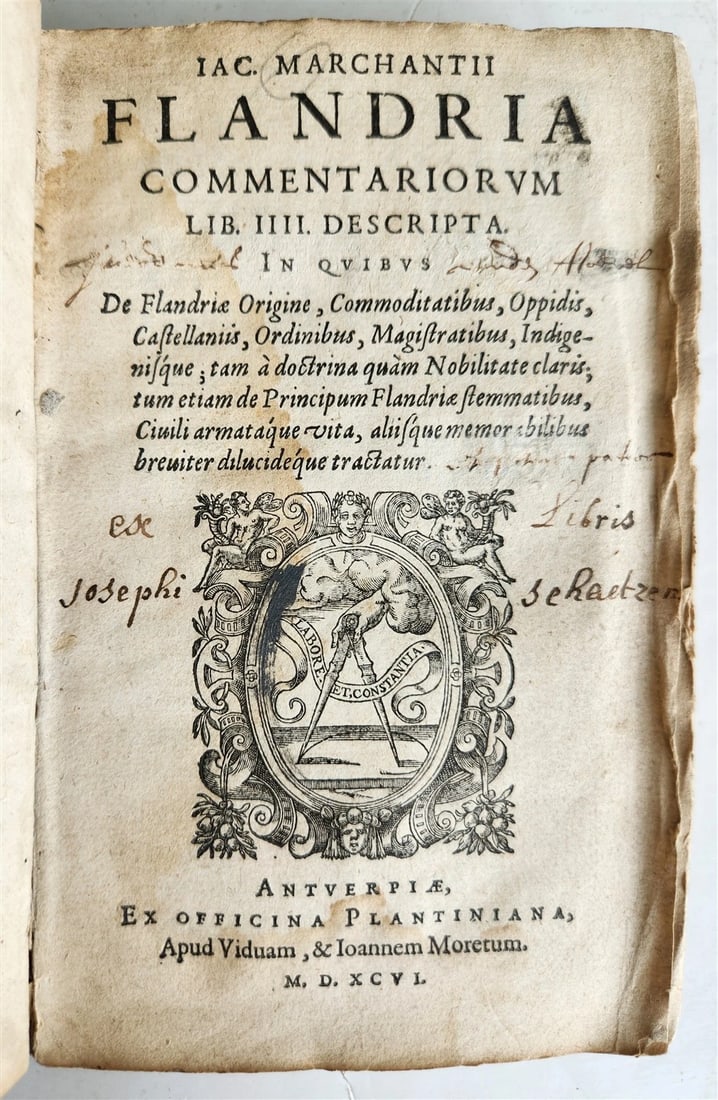 IAC. MARCHANTII
FLANDRIA
COMMENTARIORVM
LIB. IIII. DESCRIPTA.
IN QVIBVS
De Flandriæ Origine, Commoditatibus, Oppidis,
Caſtellaniis, Ordinibus, Magiſtratibus, Indige-
niſque; tam à doctrina quàm Nobilitate claris;
tum etiam de Principum Flandriæ ſtemmatibus,
Ciuili armatáque vita, aliiſque memorabilibus
breuiter dilucidéque tractatur.
ex Libris
Josephi Schaetzen
LABORE ET CONSTANTIA
ANTVERPIÆ,
EX OFFICINA PLANTINIANA,
Apud Viduam, & Ioannem Moretum.
M. D. XCVI.